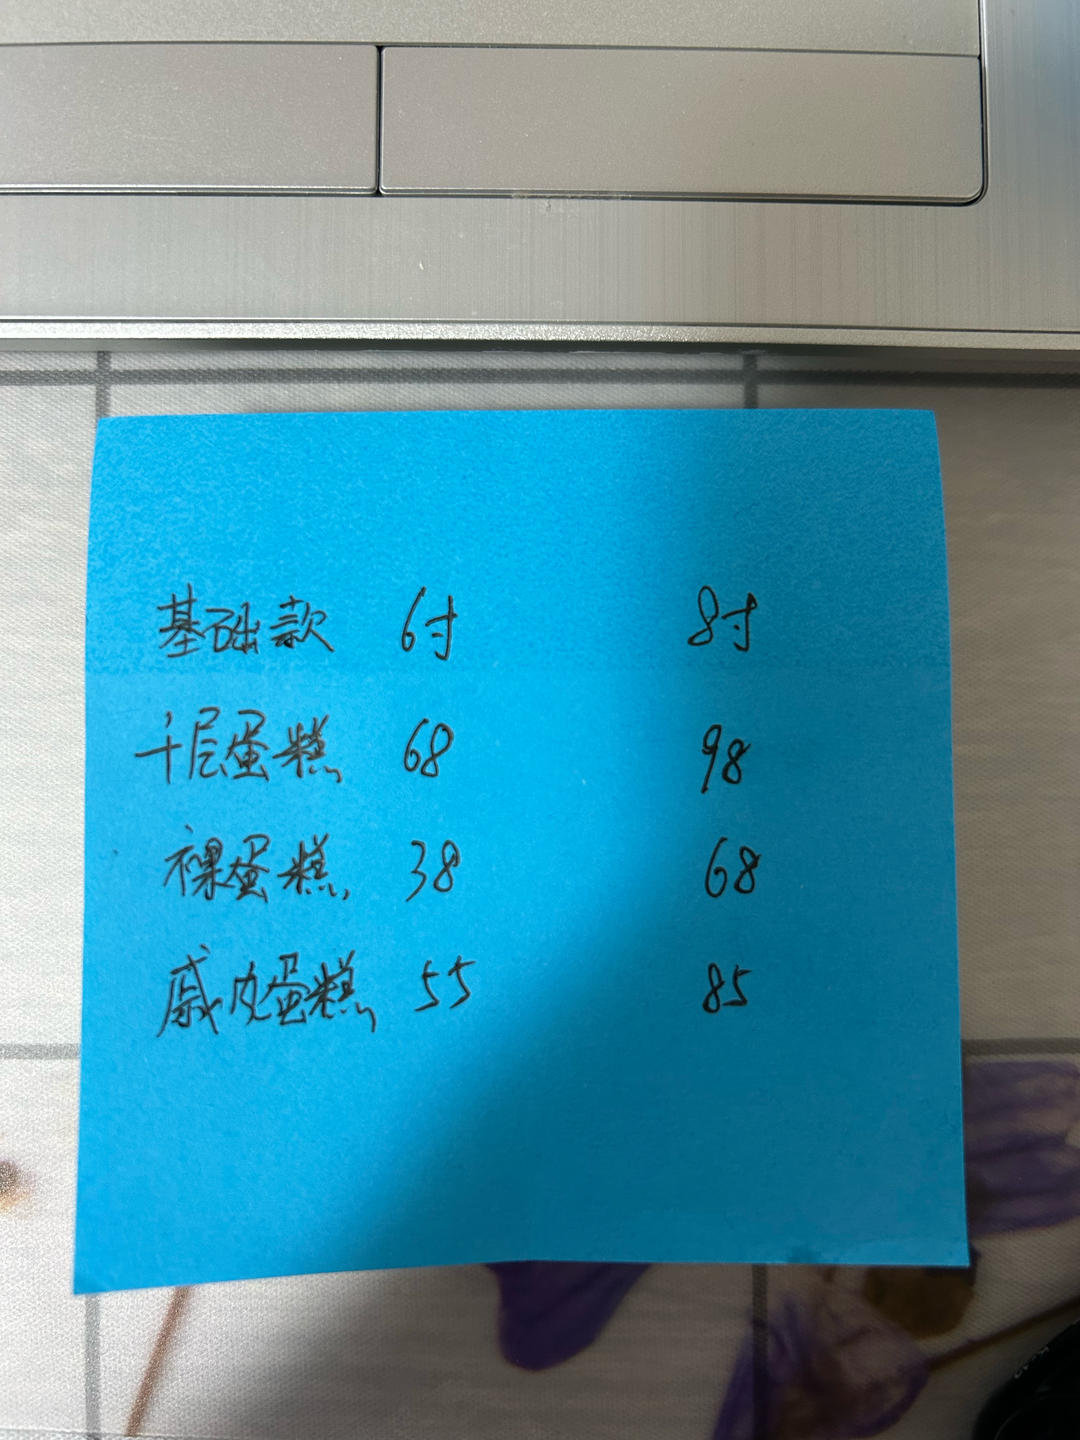 基础款 6寸 8寸
千层蛋糕 68 98
裸蛋糕 38 68
戚风蛋糕 55 85